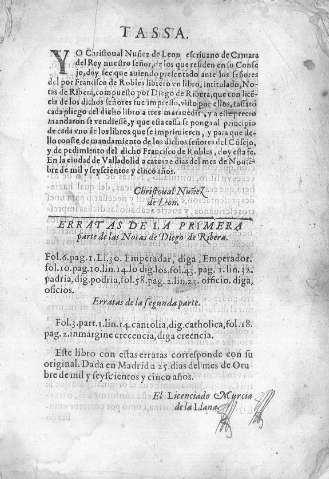 TASSA.
YO Christoual Nuñez de Leon escriuano de Camara
del Rey nuestro señor, de los que residen en su Conse
jo, doy fee que auiendo presentado ante los señores
del por Francisco de Robles librero vn libro, intitulado, Notas
de Ribera, compuesto por Diego de Ribera, que con licẽ-
cia de los dichos señores fue impresso, visto por ellos, tassarõ
cada pliego del dicho libro a tres marauedis, y a este precio
mandaron se vendiesse, y que esta tassa se ponga al principio
de cada vno de los libros que se imprimieren, y para que de-
llo conste de mandamiento de los dichos señores del Cõsejo,
y de pedimiento del dicho Francisco de Robles, doy esta fe.
En la ciudad de Valladolid a catorze dias del mes de Nouiẽ-
bre de mil y seyscientos y cinco años.
Christoual Nuñez
de Leon.
ERRATAS DE LA PRIMERA
parte de las Notas de Diego de Ribera.
Fol.6.pag.1.Li.30. Emperadar, diga, Emperador.
fol.10.pag.10.lin.14.lo dig.los.fol.43. pag. 1.lin.32.
padria, dig.podria, fol.58.pag.2.lin.23. officin. diga,
oficios.
Erratas de la segunda parte.
Fol.3.part.1.lin.14. cantolia, dig.catholica, fol.18.
pag.2.inmargine crecencia, diga creencia.
Este libro con estas erratas corresponde con su
original. Dada en Madrid a 25 dias del mes de Otu
bre de mil y seyscientos y cinco años.
El Licenciado Murcia
de la Llana.